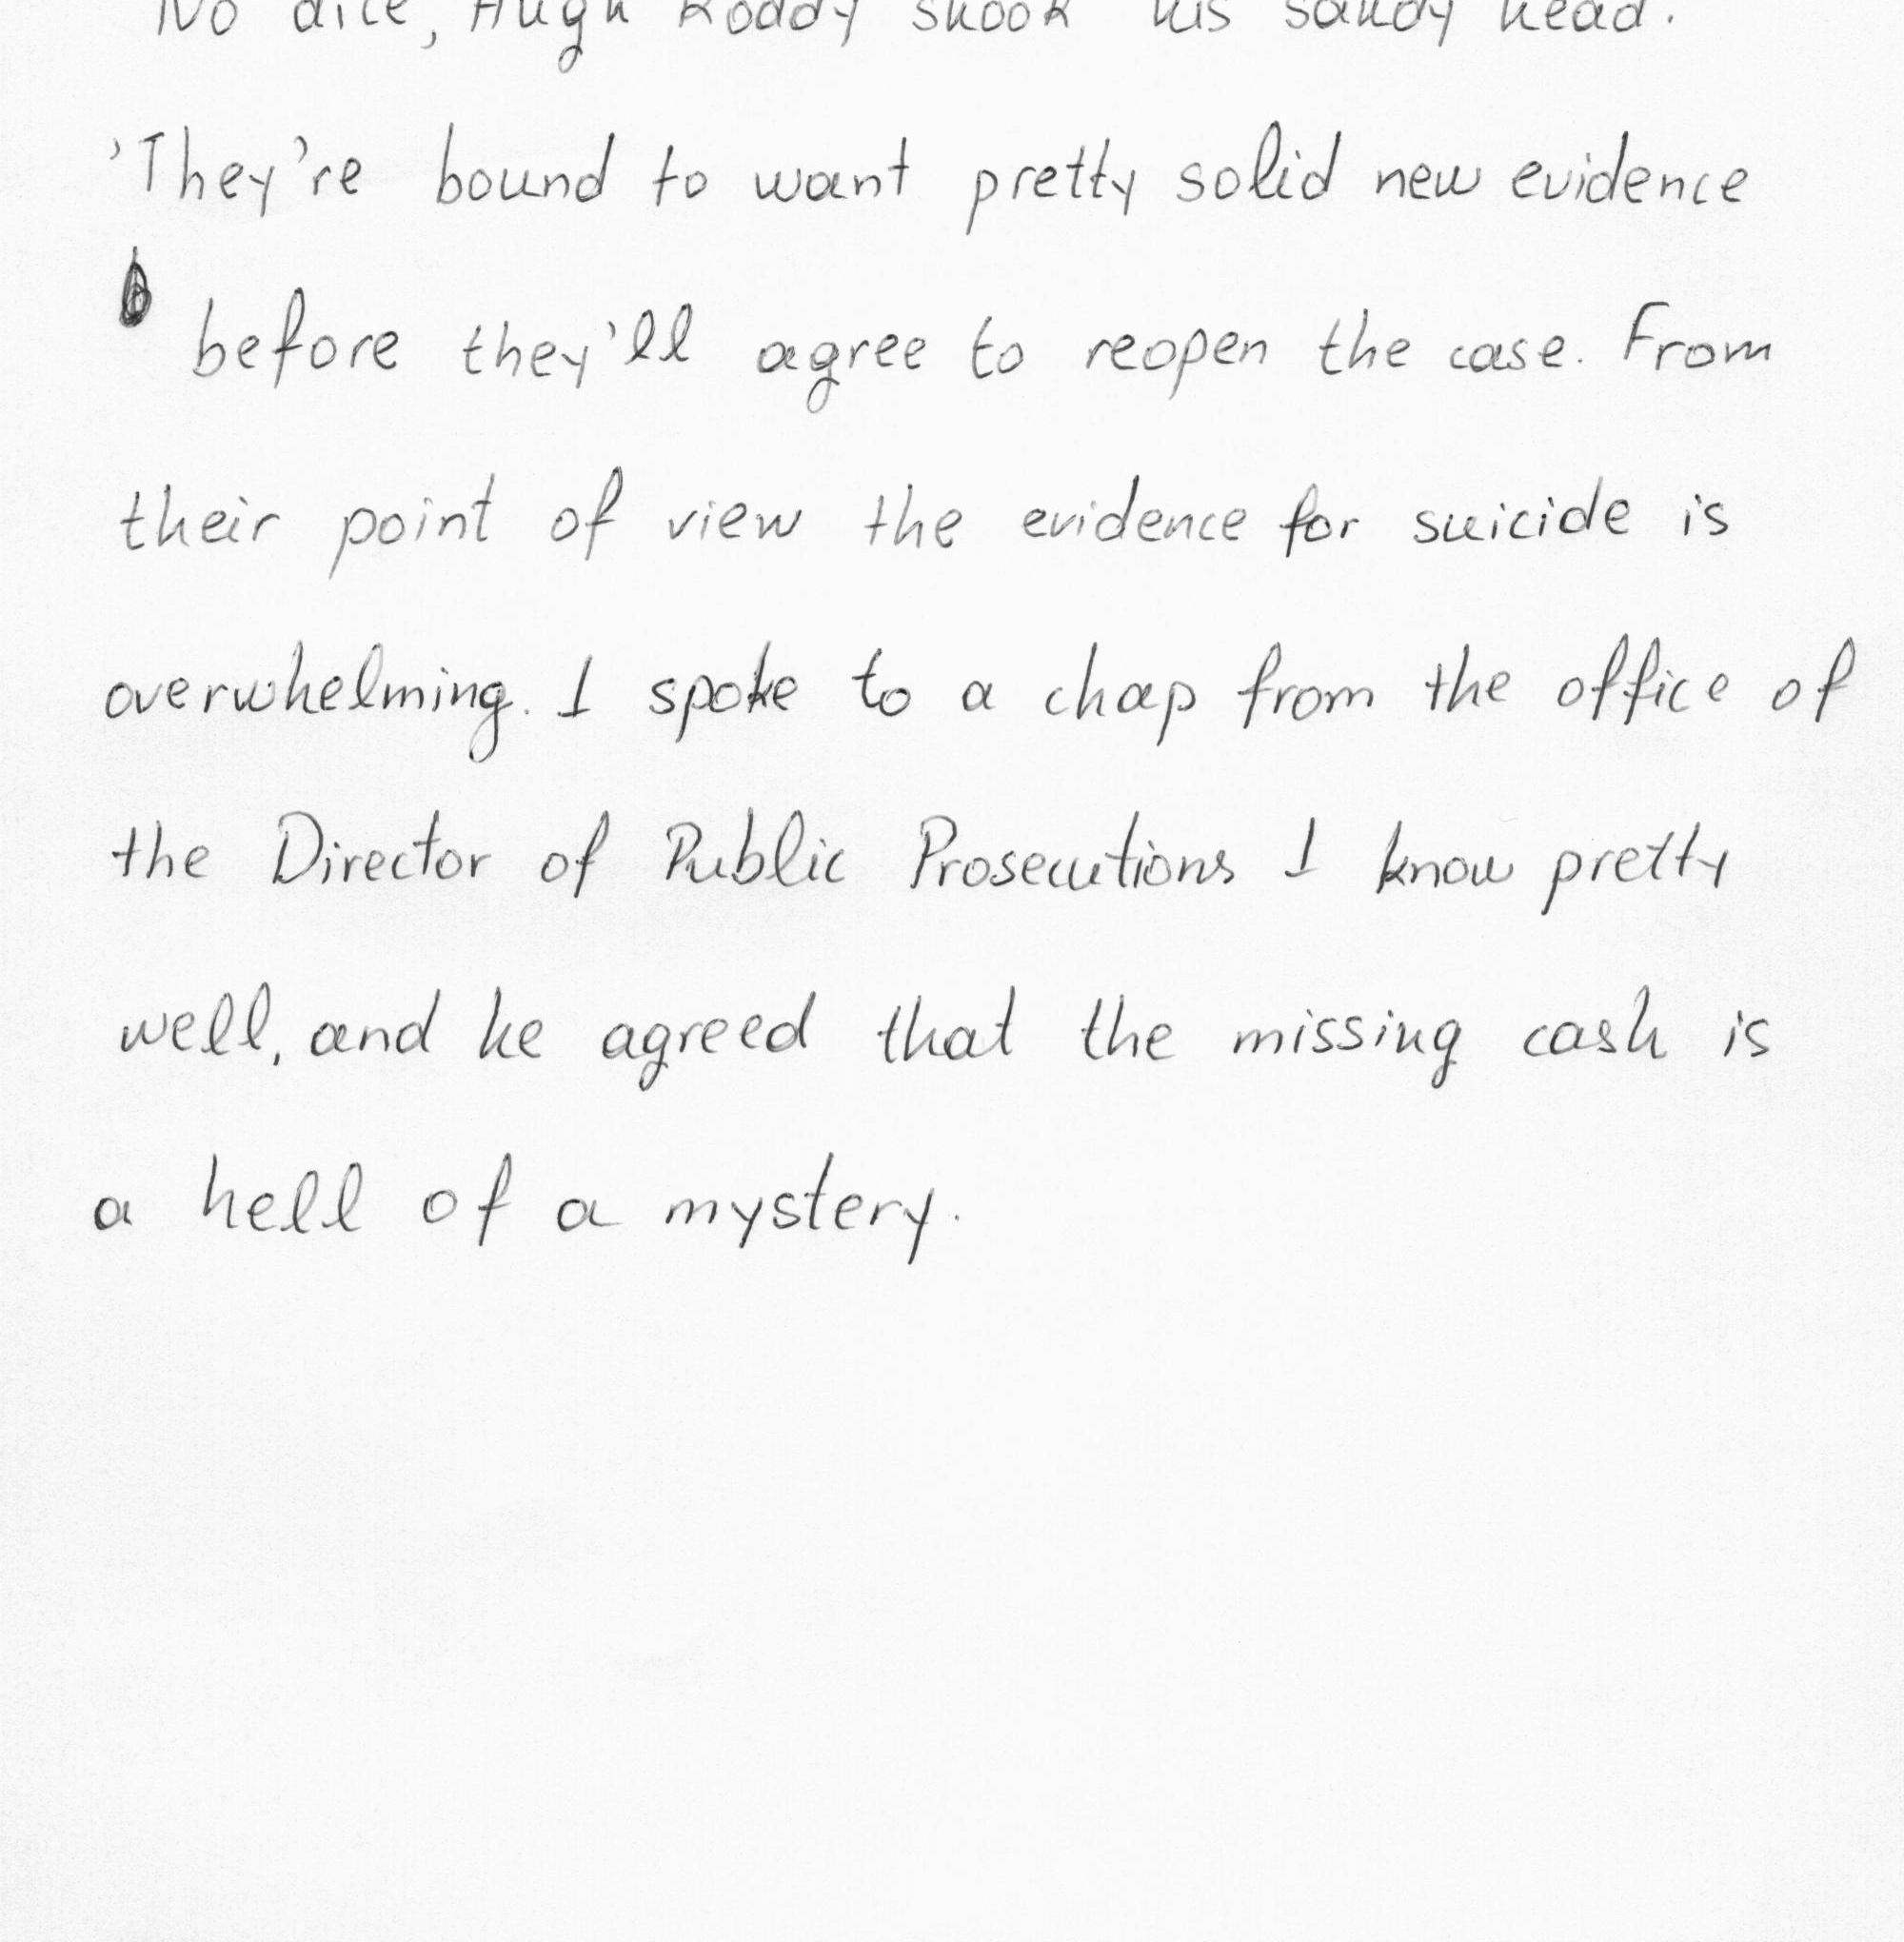 No dice, Hugh Roddy shook his sandy head.
'They're bound to want pretty solid new evidence
before they'll agree to reopen the case. From
their point of view the evidence for suicide is
overwhelming. I spoke to a chap from the office of
the Director of Public Prosecutions I know pretty
well, and he agreed that the missing cash is
a hell of a mystery.